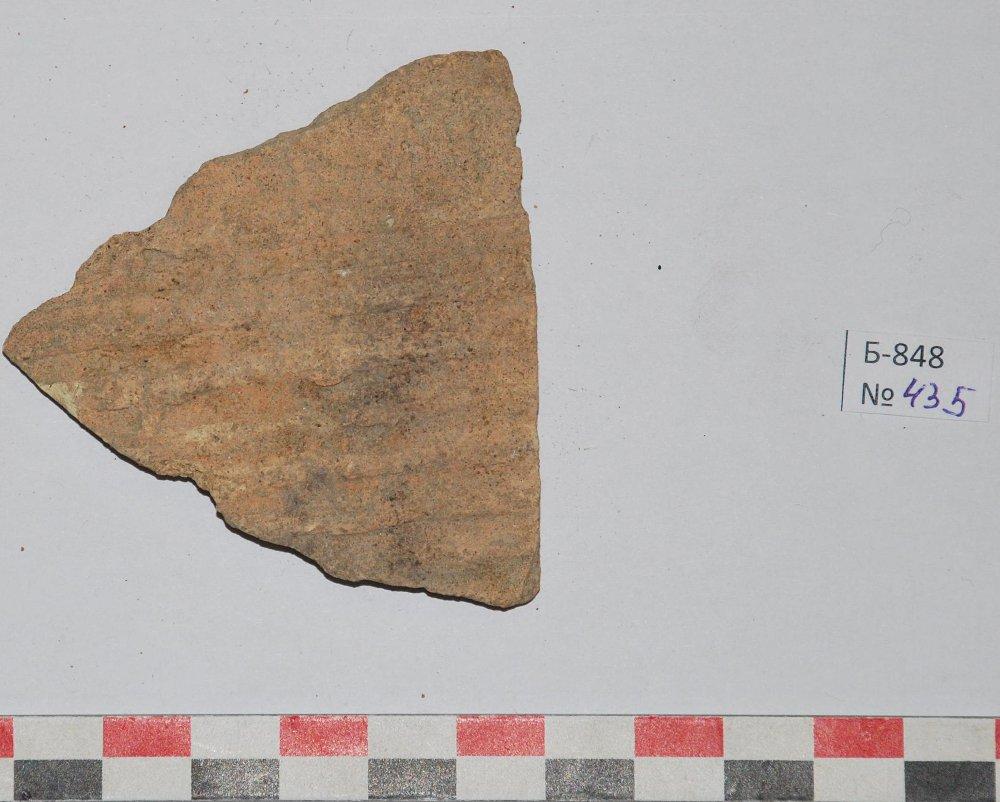 Б-848
№ 435